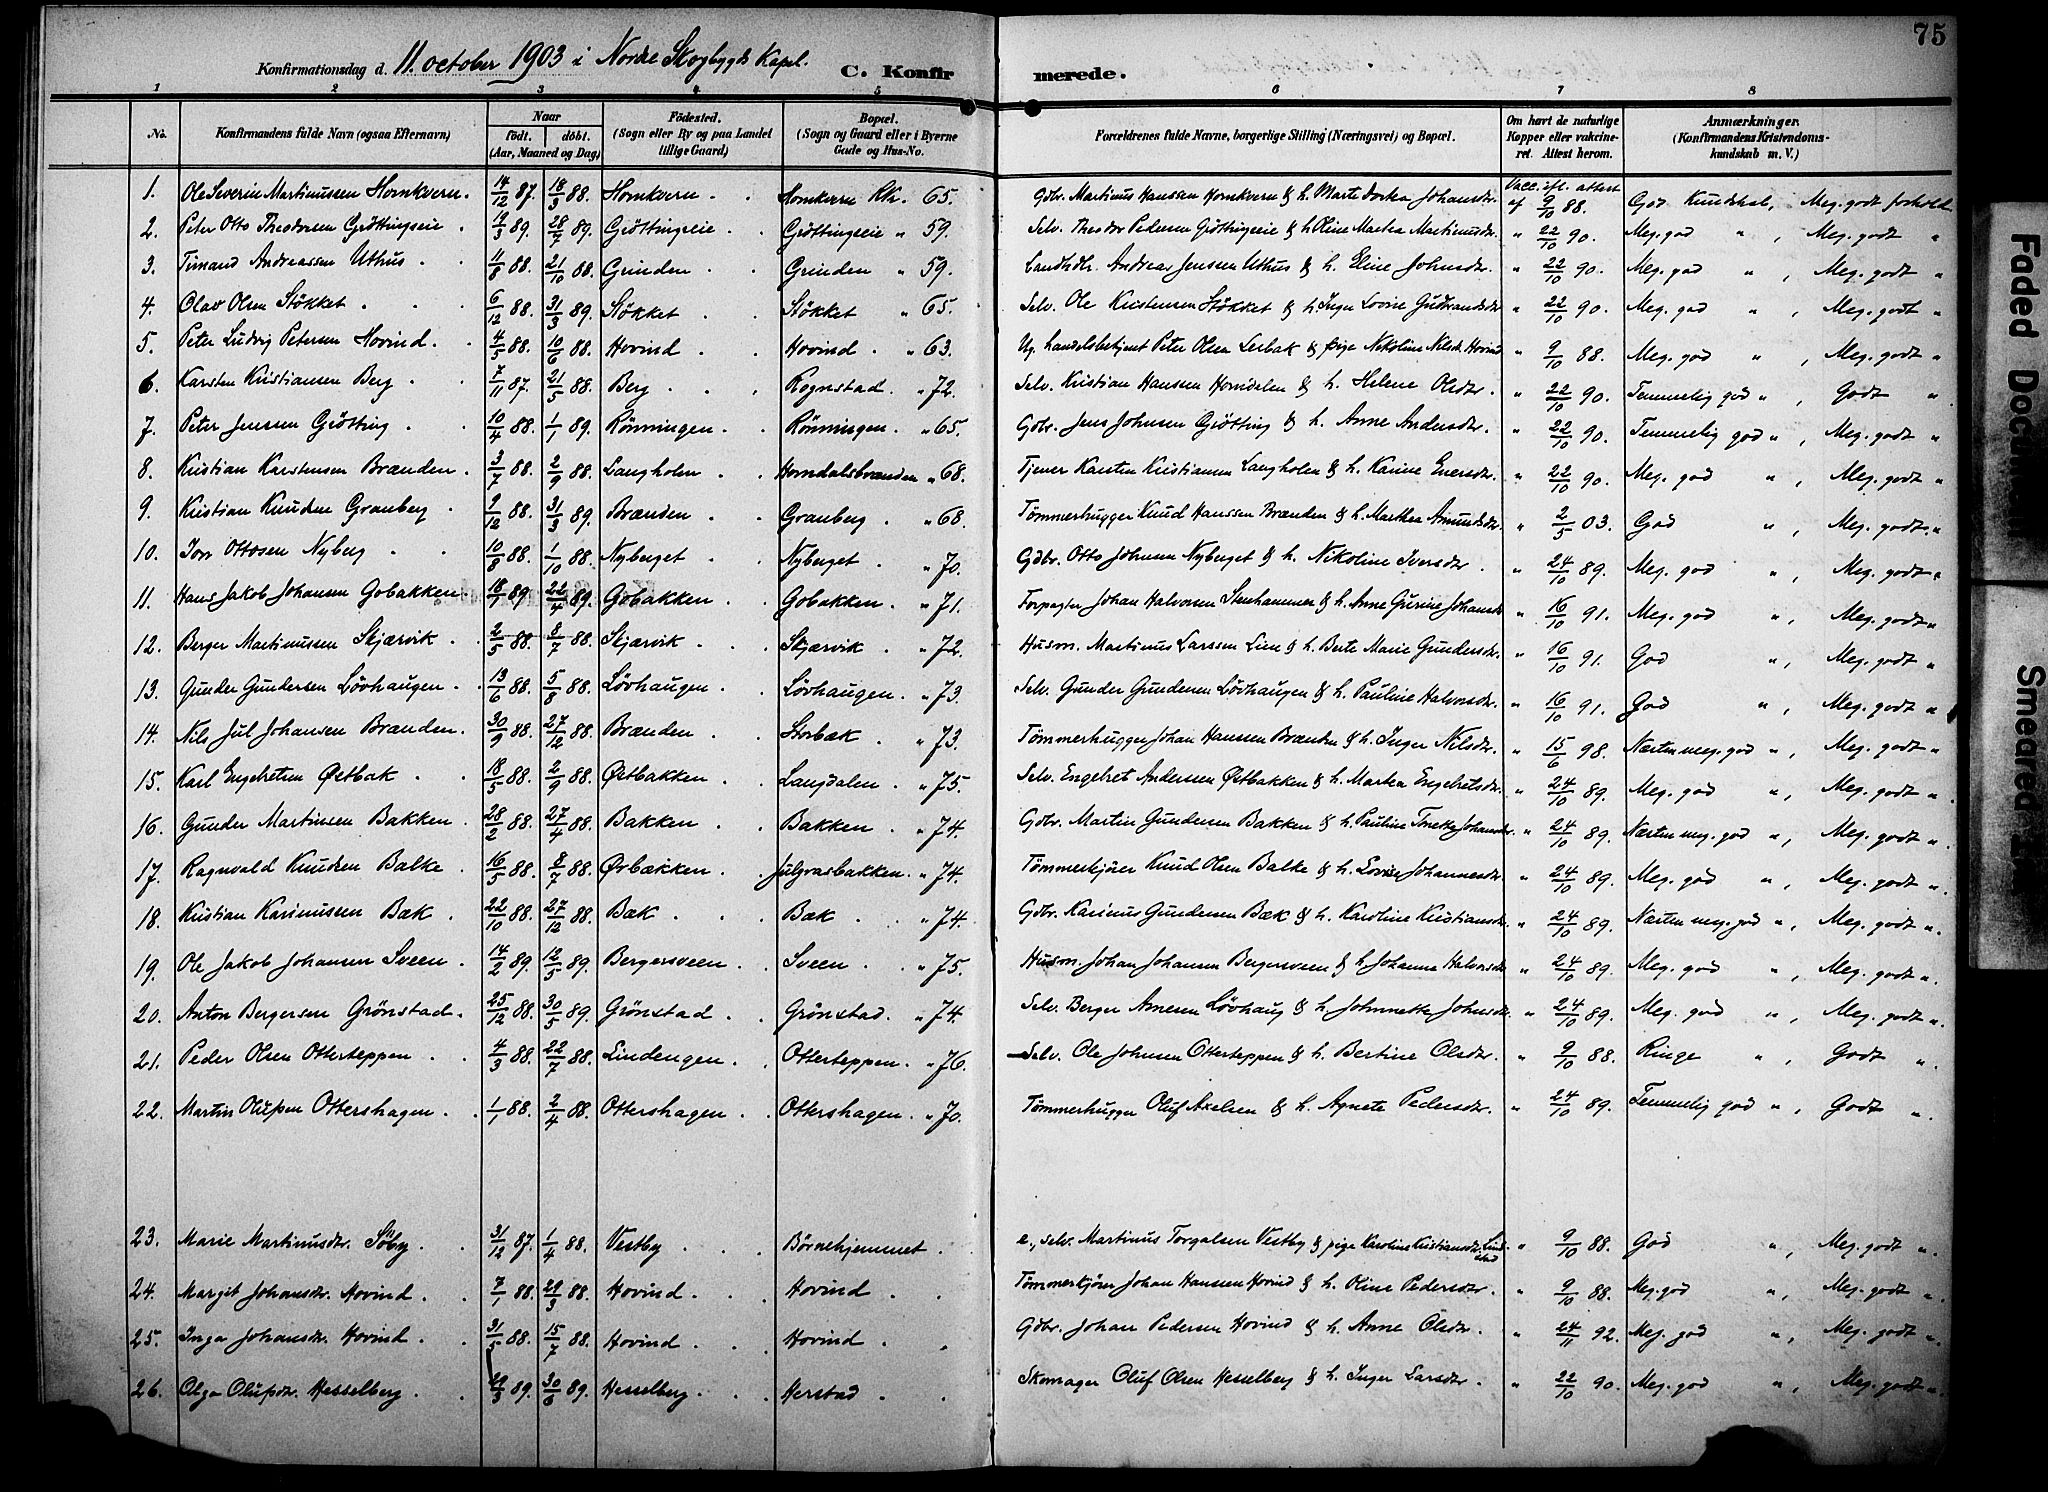 75
Konfirmationsdag d. 11. october 1903 i Nordre Skogbygds Kapel. C. Konfir merede.
1 2 3 4 5 6 7 8
No. Konfirmandens fulde Navn (ogsaa Efternavn) Naar födt. döbt. (Aar, Maaned og Dag) Födested. (Sogn eller By og paa Landet tillige Gaard) Bopæl. (Sogn og Gaard eller i Byerne Gade og Hus-No. Forældrenes fulde Navne, borgerlige Stilling (Næringsvei) og Bopæl. Om havt de naturlige Kopper eller vakcineret. Attest herom. Anmærkninger. (Konfirmandens Kristendomskundskab m. V.)
1. Ole Severin Martinussen Homkvern. 14/12 87. 18/3 88. Homkvern Homkvern 65. Gdbr. Martinus Hanssen Homkvern & h. Marte Dorka Johansdr. Vacc. ifl. attest af 9/10 88. God Kundskab, Meg. godt forhold
2. Peter Otto Theodorsen Gröttingseie 19/3 89. 28/7 89. Gröttingseie Gröttingseie " 59. Selv. Theodor Pedersen Gröttingseie & h. Oline Martea Martinusdr. " 22/10 90. Meg. god " , Meg. godt "
3. Timand Andreassen Uthus 11/8 88. 21/10 88. Grinden Grinden " 59. Landhdlr. Andreas Jenssen Uthus & h. Eline Johnsdr. " 22/10 90. Meg. god " , Meg. godt "
4. Olav Olsen Stökket 6/12 88. 31/3 89. Stökket Stökket " 65. Selv. Ole Kristensen Stökket & h. Inger Lovise Gudbrandsdr. " 22/10 90. Meg. god " , Meg. godt "
5. Peter Ludvig Petersen Hovind. 4/5 88. 10/6 88. Hovind Hovind " 63. Ug. handelsbetjent Peter Olsen Leibak & pige Nikoline Nilsdr. Hovind " 9/10 88. Meg. god " , Meg. godt "
6. Karsten Kristiansen Berg 7/11 87. 21/5 88. Berg Rognstad " 72. Selv. Kristian Hanssen Homdalen & h. Helene Olsdr. " 22/10 90. Temmelig god " , Godt "
7. Peter Jenssen Grötting 10/4 88. 1/1 89. Rönningen Rönningen " 65. Gdbr. Jens Johnsen Grötting & h. Anne Andersdr. " 22/10 90. Temmelig god " , Meg. godt "
8. Kristian Karstensen Brænden 3/7 88. 2/9 88. Langholen Horndalsbrænden " 68. Tjener Karsten Kristiansen Langholen & h. Karine Enersdr. " 22/10 90. Meg. god " , Meg. godt "
9. Kristian Knudsen Granberg 9/12 88. 31/3 89. Brænden Granberg " 68. Tömmerhugger Knud Hanssen Brænden & h. Marthea Amundsdr. " 2/5 03. God " , Meg. godt "
10. Iver Ottosen Nyberg 10/8 88. 1/10 88. Nyberget Nyberget " 70. Gdbr. Otto Johnsen Nyberget & h. Nikoline Iversdr. " 24/10 89. Meg. god " , Meg. godt "
11. Hans Jakob Johansen Gobakken 18/1 89. 22/4 89. Gobakken Gobakken " 71. Forpagter Johan Halvorsen Stenhammer & h. Anne Gurine Johansdr. " 16/10 91. Meg. god " , Meg. godt "
12. Berger Martinussen Skjærvik 2/5 88. 8/7 88. Skjærvik Skjærvik " 72. Husm. Martinus Larssen Lien & h. Berte Marie Gundersdr. " 16/10 91. God " , Meg. godt "
13. Gunder Gundersen Lövhaugen 13/6 88. 5/8 88. Lövhaugen Lövhaugen " 73. Selv. Gunder Gundersen Lövhaugen & h. Pauline Halvorsdr. " 16/10 91. God " , Meg. godt "
14. Nils Jul Johansen Brænden. 30/9 88. 27/12 88. Brænden Storbæk " 73. Tömmerhugger Johan Hanssen Brænden & h. Inger Nilsdr. " 15/6 98. Næsten meg. god " , Meg. godt "
15. Karl Engebretsen Østbak 18/5 88. 2/9 88. Østbakken Langdalen " 75. Selv. Engebret Andersen Østbakken & h. Martea Engebretsdr. " 24/10 89. Meg. god " , Meg. godt "
16. Gunder Martinsen Bakken 28/2 88. 27/4 88. Bakken Bakken " 74. Gdbr. Martin Gundersen Bakken & h. Pauline Johansdr. " 24/10 89. Næsten meg. god " , Meg. godt "
17. Ragnvald Knudsen Balke 16/5 88. 8/7 88. Ørbækken Julgrasbakken " 74. Tömmerkjörer Knud Olsen Balke & h. Lovise Johannesdr. " 24/10 89. Meg. god " , Meg. godt "
18. Kristian Karinussen Bæk 22/10 88. 27/12 88. Bæk Bæk " 74. Gdbr. Karinus Gundersen Bæk & h. Karoline Kristiansdr. " 24/10 89. Næsten meg. god " , Meg. godt "
19. Ole Jakob Johansen Sveen 14/2 89. 12/5 89. Bergersveen Sveen " 75. Husm. Johan Johansen Bergersveen & h. Johanne Halvorsdr. " 24/10 89. Meg. god " , Meg. godt "
20. Anton Bergersen Grönstad 25/12 88. 30/5 89. Grönstad Grönstad " 74. Selv. Berger Arnesen Lövhaug & h. Johnnette Johnsdr. " 24/10 89. Meg. god " , Meg. godt "
21. Peder Olsen Otterteppen 4/3 88. 22/7 88. Lindengen Otterteppen " 76. Selv. Ole Johnsen Otterteppen & h. Bertine Olsdr. " 9/10 88. Ringe " , Godt "
22. Martin Olufsen Ottershagen 1/1 88. 2/4 88. Ottershagen Ottershagen " 70. Tömmerhugger Oluf Axelsen & h. Agnete Pedersdr. " 24/10 89. Temmelig god " , Godt "
23. Marie Martinusdr. Söby 31/12 87. 1/4 88. Vestby Börnehjemmet e., selv. Martinus Torgalsen Vestby & pige Karoline Kristiansdr. Lindstad " 9/10 88. God " , Meg. godt "
24. Margit Johansdr. Hovind 7/1 88. 29/3 88. Hovind Hovind Tömmerkjörer Johan Hanssen Hovind & h. Oline Pedersdr. " 9/10 88. Meg. god " , Meg. godt "
25. Inga Johansdr. Hovind 31/5 88. 15/7 88. Hovind Hovind Gdbr. Johan Pedersen Hovind & h. Anne Olsdr. " 24/11 92. Meg. god " , Meg. godt "
26. Olga Olufsdr. Hesselberg 29/3 89. 30/6 89. Hesselberg Herstad Skomager Oluf Olsen Hesselberg & h. Inger Larsdr. " 22/10 90. Meg. god " , Meg. godt "
Faded Document
Smeared